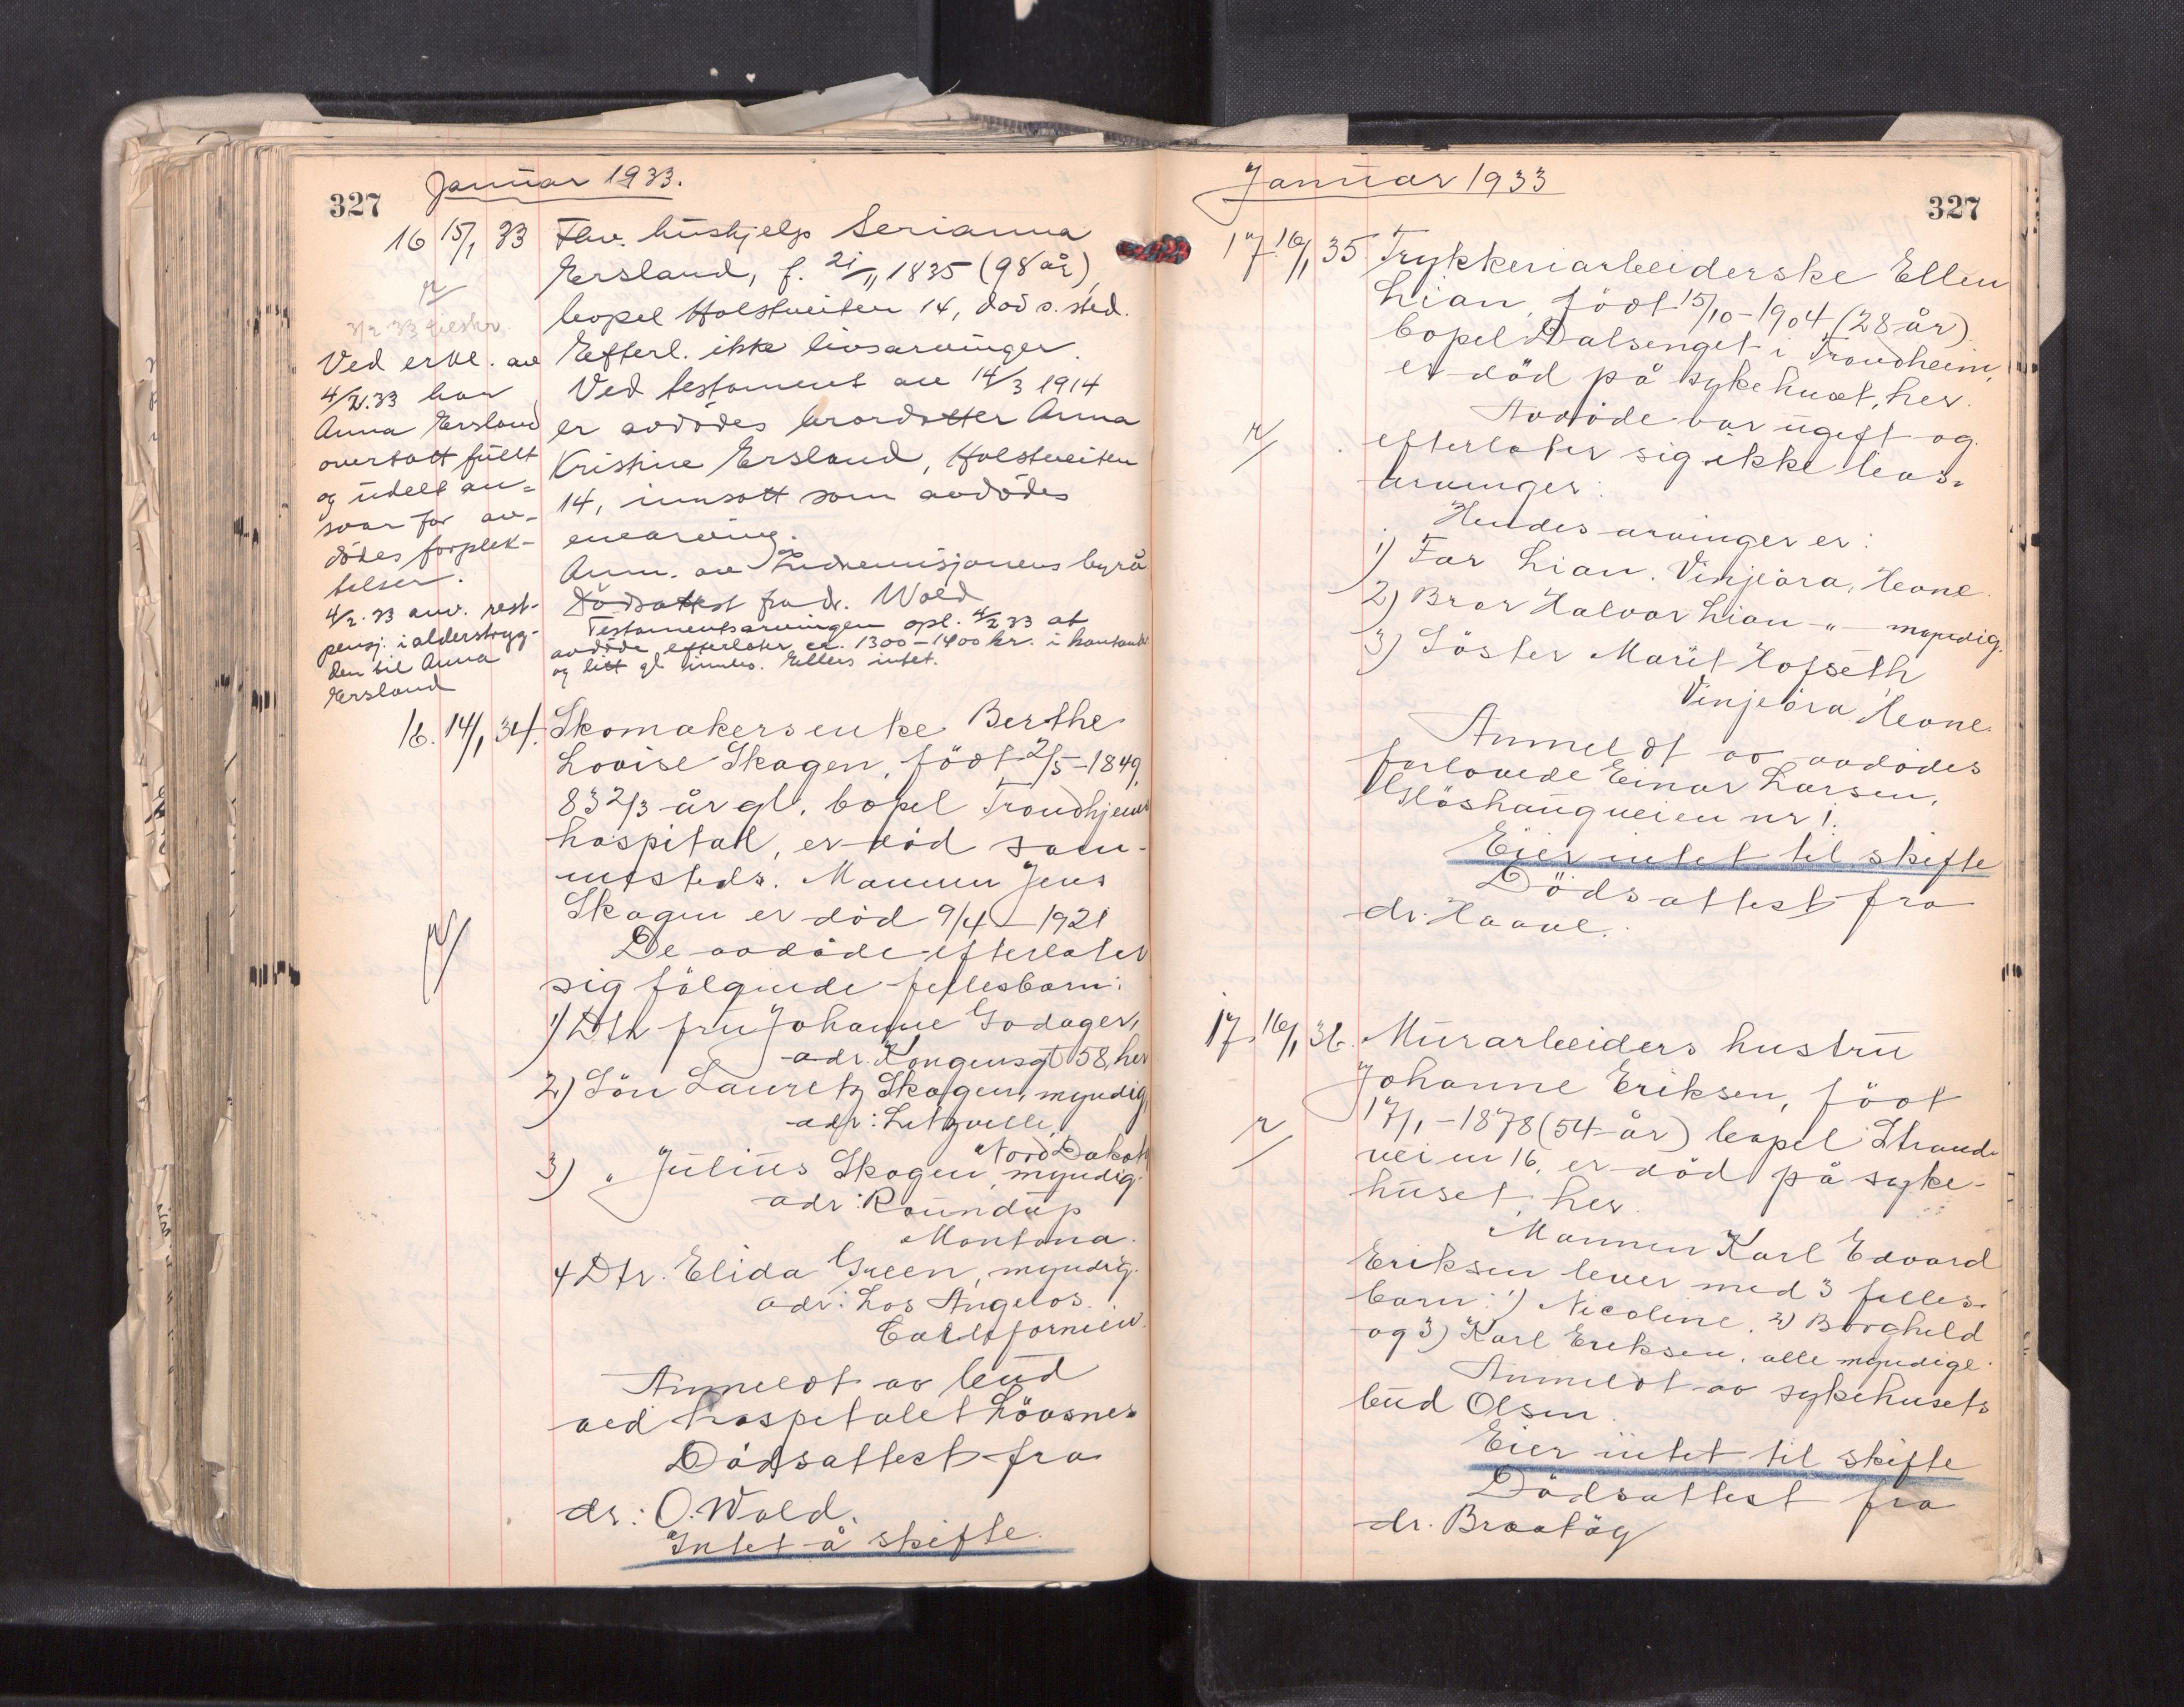 327
Januar 1933.
16 15/1 33 Fhv. hushjelp Serianna
Ersland, f. 21/11 1835 (98 år),
bopel Holstveiten 14, död s. sted.
Efterl. ikke livsarvinger.
Ved testament av 14/3 1914
er avdödes brordatter Anna
Kristine Ersland, Holstveiten
14, innsatt som avdödes
enearving.
Anm. av Indremisjonens byrå
Dödsattest fra dr. Wold
Testamentsarvingen opl. 4/2 33 at
avdöde efterlater ca. 1300-1400 kr. i kontanter
og litt gl. innbo. Ellers intet.
Ved erkl. av
4/2.33 har
Anna Ersland
overtatt fullt
og udelt an-
svar for av-
dödes forplik-
telser.
4/2.33 anv. rest-
pensj. i alderstryg-
den til Anna
Ersland
16. 14/1 34. Skomakersenke Berthe
Lovise Skagen, födt 2/5-1849,
83 2/3 år gl. bopel Trondhjems
hospital, er död sam-
mesteds. Mannen Jens
Skagen er död 9/4-1921
De avdöde efterlater
sig fölgende fellesbarn:
1) Dtr fru Johanne Godager,
adr. Kongensgt 58, her
2) Sön Lauretz Skagen, myndig,
adr: Litzville,
Nord Dakota
3) " Julius Skagen, myndig.
adr: Roundup
Montana.
4 Dtr. Elida Green, myndig.
adr: Los Angelos.
Californien.
Anmeldt av bud
ved hospitalet Lövsnes
Dödsattest fra
dr: O. Wold.
Intet å skifte.
Januar 1933
327
17. 16/1 35 Trykkeriarbeiderske Ellen
Lian, födt 15/10-1904 (28 år)
bopel Dalsenget i Trondheim,
er död på sykehuset, her.
Avdöde var ugift og
efterlater sig ikke livs-
arvinger:
Hendes arvinger er:
1) Far Lian. Vinjeöra, Hevne.
2) Bror Halvor Lian -"- myndig.
3) Söster Marit Hofseth
Vinjeöra, Hevne.
Anmeldt av avdödes
forlovede Einar Larsen,
Gløshaugveien nr 1.
Eier intet til skifte
Dödsattest fra
dr. Haave.
17. 16/1 36. Murarbeiders hustru
Johanne Eriksen, födt
17/1-1878 (54 år) bopel Strand-
veien 16, er död på syke-
huset, her.
Mannen Karl Edvard
Eriksen lever med 3 felles-
barn: 1) Nicoline, 2) Borghild
og 3) Karl Eriksen, alle myndige.
Anmeldt av sykehusets
bud Olsen.
Eier intet til skifte
Dödsattest fra
dr. Braatöy